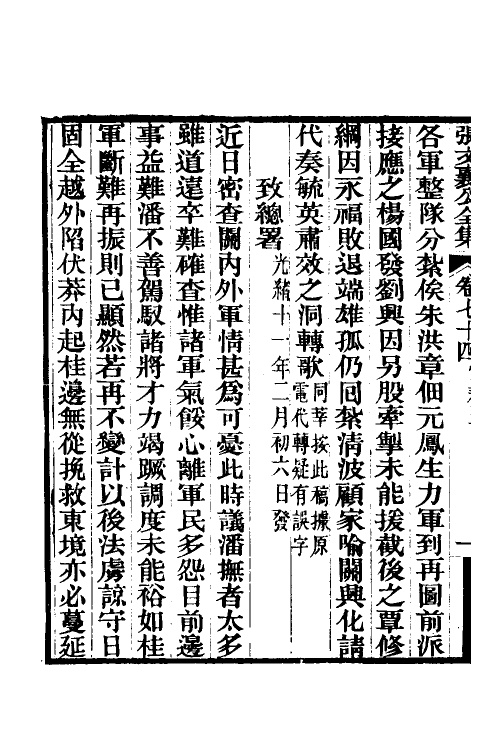 張文襄公全集 卷七十四 一
各軍整隊分紮俟朱洪章佃元鳳生力軍到再圖前派
接應之楊國發劉興因另股牽掣未能援截後之覃修
綱因永福敗退端雄孤仍囘紮清波顧家喻關興化請
代奏毓英肅效之洞轉歌 同莘按此稿據原電代轉疑有誤字
致總署 光緒十一年二月初六日發
近日密查關內外軍情甚爲可憂此時議潘撫者太多
雖道遠卒難確查惟諸軍氣餒心離軍民多怨目前邊
事益難潘不善駕馭諸將才力竭蹶調度未能裕如桂
軍斷難再振則已顯然若再不變計以後法虜諒守日
固全越外陷伏莽內起桂邊無從挽救東境亦必蔓延